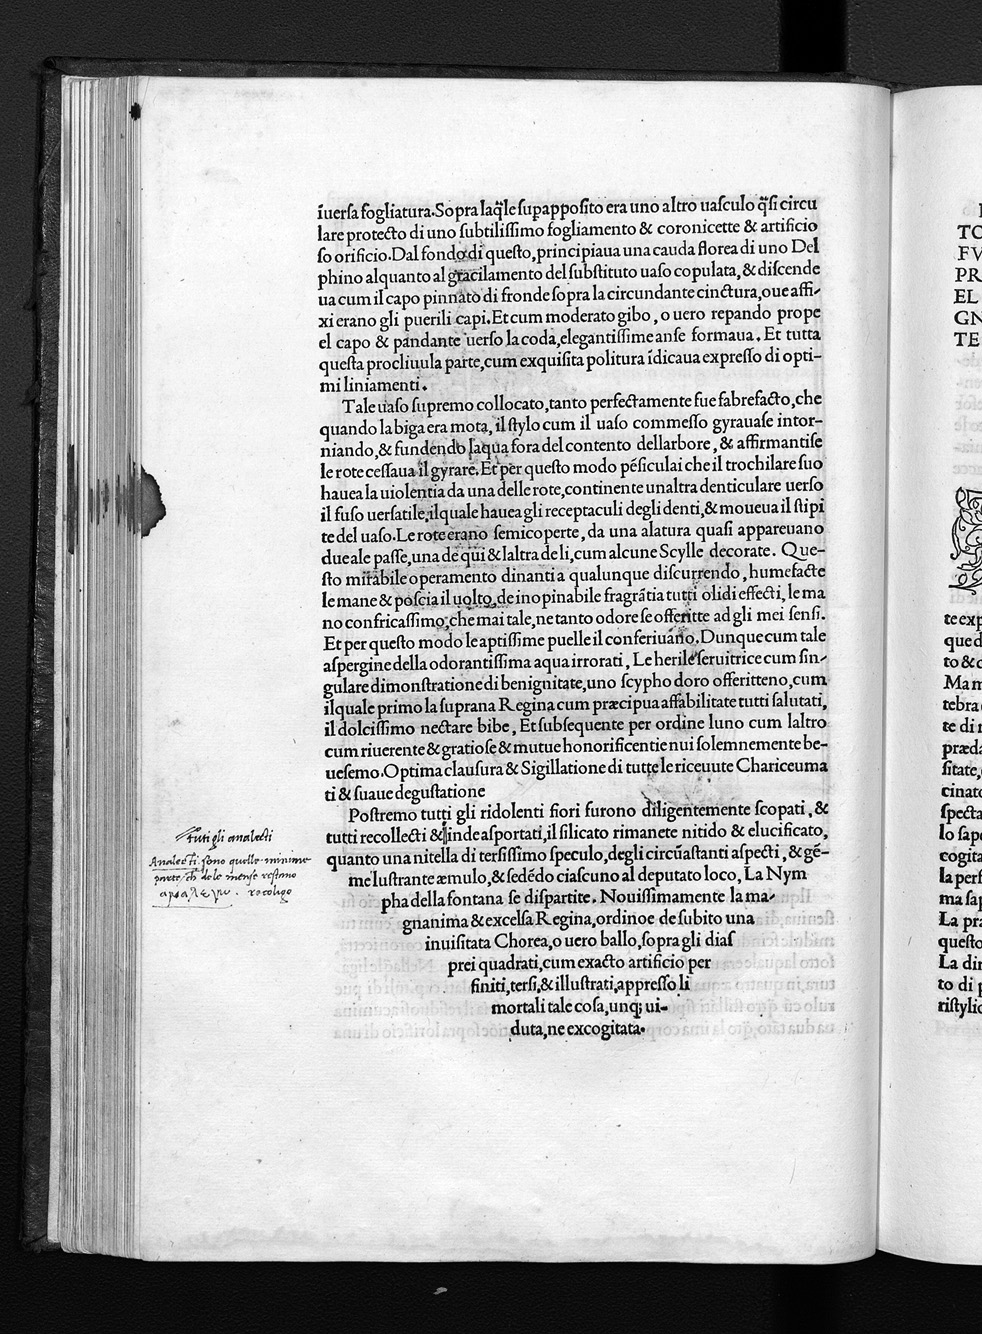 ĩuerſa fogliatura.Sopra laq̃le ſupappoſito era uno altro uaſculo q̃ſi circu
lare protecto di uno ſubtiliſſimo fogliamento & coronicette & artificio
ſo orificio.Dal fondo di queſto,principiaua una cauda florea di uno Del
phino alquanto al gracilamento del ſubſtituto uaſo copulata,& diſcende
ua cum il capo pinnato di fronde ſopra la circundante cinctura,oue affi-
xi erano gli puerili capi.Et cum moderato gibo, o uero repando prope
el capo & pandante uerſo la coda,elegantiſſime anſe formaua. Et tutta
queſta procliuula parte,cum exquiſita politura ĩdicaua expreſſo di opti-
mi liniamenti.
Tale uaſo ſupremo collocato,tanto perfectamente fue fabrefacto,che
quando la biga era mota, il ſtylo cum il uaſo commeſſo gyrauaſe intor-
niando,& fundendo laqua fora del contento dellarbore, & affirmantiſe
le rote ceſſaua il gyrare. Et per queſto modo péſiculai che il trochilare ſuo
hauea la uiolentia da una delle rote,continente unaltra denticulare uerſo
il fuſo uerſatile,ilquale hauea gli receptaculi degli denti,& moueua il ſtipi
te del uaſo.Le rote erano ſemicoperte, da una alatura quaſi appareuano
due ale paſſe,una de qui & laltra de li,cum alcune Scylle decorate. Que-
ſto mirabile operamento dinanti a qualunque diſcurrendo, humefacte
le mane & poſcia il uolto,de inopinabile fragrãtia tutti olidi effecti, le ma
no confricaſſimo,che mai tale,ne tanto odore ſe offeritte ad gli mei ſenſi.
Et per queſto modo le aptiſſime puelle il conferiuano.Dunque cum tale
aſpergine della odorantiſſima aqua irrorati, Le herile ſeruitrice cum ſin-
gulare dimonſtratione di benignitate,uno ſcypho doro offeritteno,cum
ilquale primo la ſuprana Regina cum præcipua affabilitate tutti ſalutati,
il dolciſſimo nectare bibe, Et ſubſequente per ordine luno cum laltro
cum riuerente & gratioſe & mutue honorificentie nui ſolemnemente be-
ueſemo.Optima clauſura & Sigillatione di tutte le riceuute Chariceuma
ti & ſuaue deguſtatione
Poſtremo tutti gli ridolenti fiori furono diligentemente ſcopati, &
tutti recollecti & inde aſportati,il ſilicato rimanete nitido & elucificato,
quanto una nitella di terſiſſimo ſpeculo,degli circũaſtanti aſpecti, & gẽ-
me luſtrante æmulo,& ſedẽdo ciaſcuno al deputato loco, La Nym
pha della fontana ſe diſpartite. Nouiſſimamente la ma-
gnanima & excelſa Regina,ordinoe de ſubito una
inuiſitata Chorea,o uero ballo,ſopra gli diaſ
prei quadrati,cum exacto artificio per
finiti,terſi,& illuſtrati,appreſſo li
mortali tale coſa,unq; ui-
duta,ne excogitata.
tuti gli analecti
Analecti ſono quelle minime
parte ch de le menſe reſtano
rocoligo
TO
FV
PR
EL
GN
TE
te exp
que d
to & c
Mam
tebra
te di
præda
ſitate,
cinato
ſpecta
lo ſape
cogita
la perf
ma ſap
La pra
queſto
La din
to di p
riſtylic